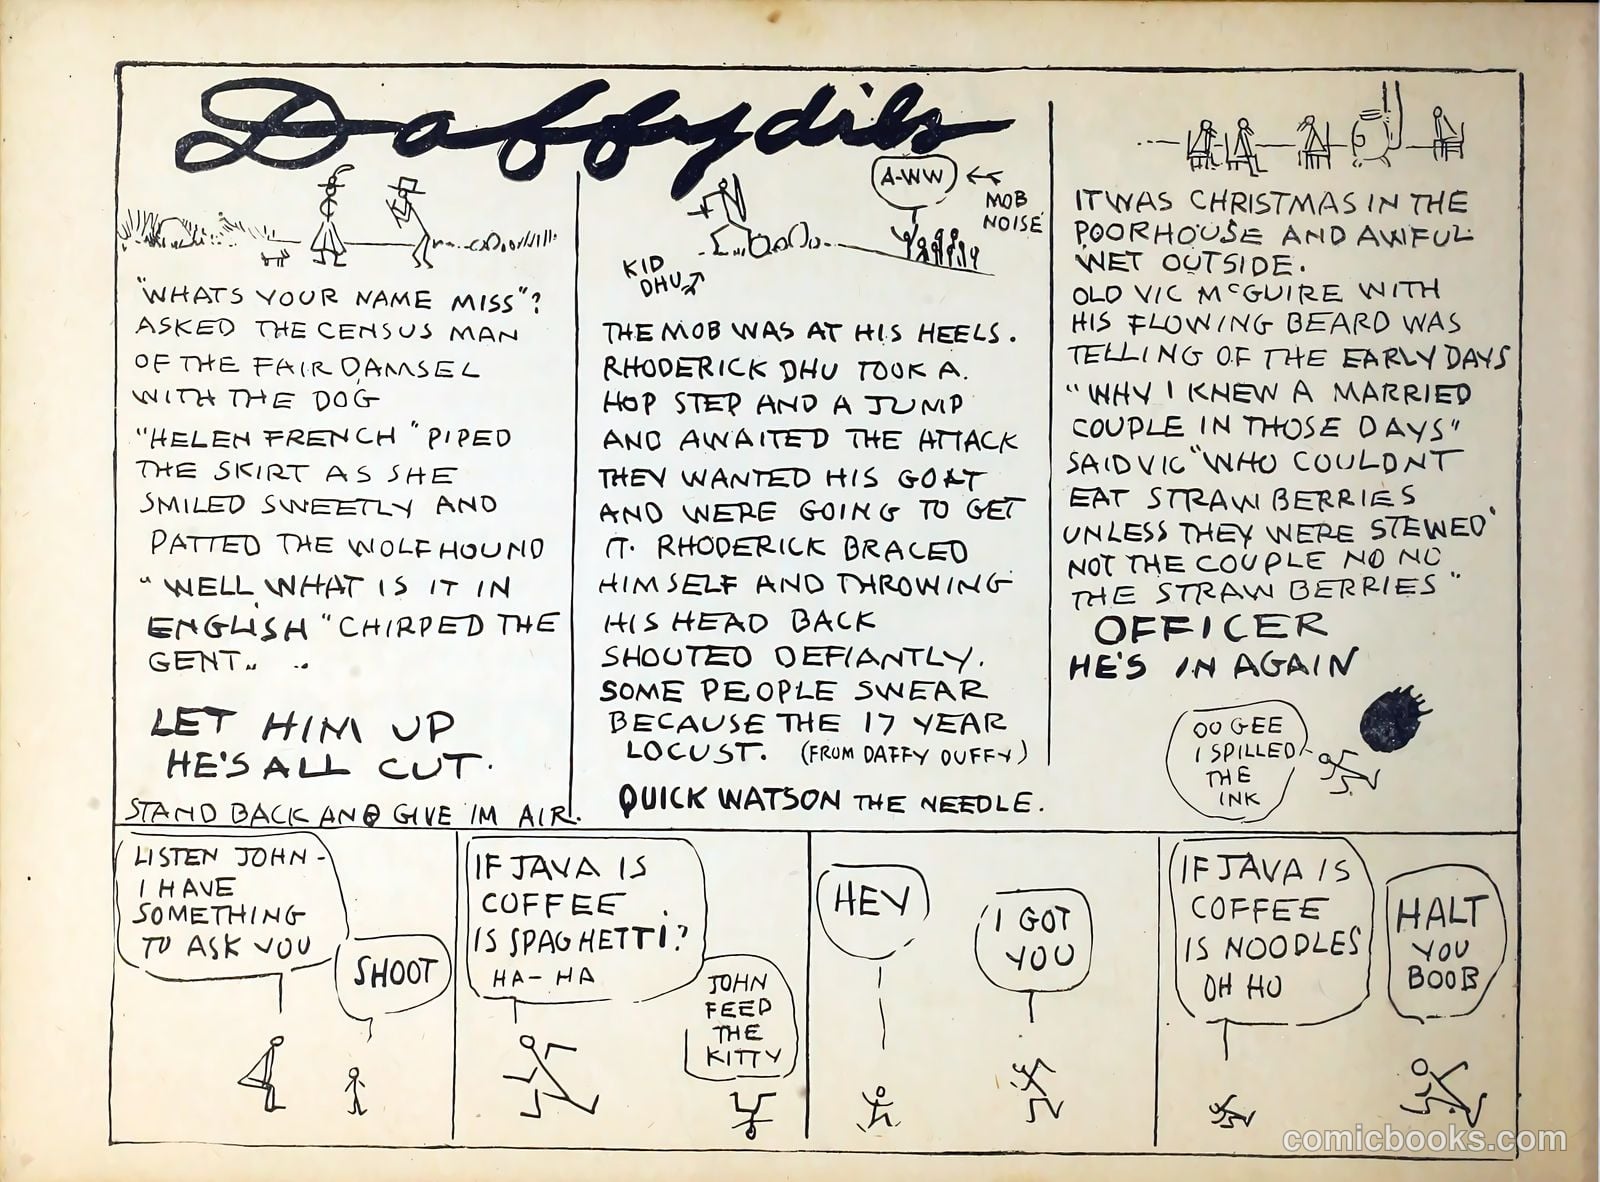 Daffydils
"WHATS YOUR NAME MISS"?
ASKED THE CENSUS MAN
OF THE FAIR DAMSEL
WITH THE DOG
"HELEN FRENCH" PIPED
THE SKIRT AS SHE
SMILED SWEETLY AND
PATTED THE WOLFHOUND
"WELL WHAT IS IT IN
ENGLISH" CHIRPED THE
GENT.. ..
LET HIM UP
HE'S ALL CUT.
STAND BACK AND GIVE IM AIR.
A-WW
MOB
NOISE
KID
DHU
THE MOB WAS AT HIS HEELS.
RHODERICK DHU TOOK A.
HOP STEP AND A JUMP
AND AWAITED THE ATTACK
THEY WANTED HIS GOAT
AND WERE GOING TO GET
IT. RHODERICK BRACED
HIMSELF AND THROWING
HIS HEAD BACK
SHOUTED DEFIANTLY.
SOME PEOPLE SWEAR
BECAUSE THE 17 YEAR
LOCUST. (FROM DAFFY DUFFY)
QUICK WATSON THE NEEDLE.
IT WAS CHRISTMAS IN THE
POORHOUSE AND AWFUL
WET OUTSIDE.
OLD VIC McGUIRE WITH
HIS FLOWING BEARD WAS
TELLING OF THE EARLY DAYS
"WHY I KNEW A MARRIED
COUPLE IN THOSE DAYS"
SAID VIC "WHO COULDNT
EAT STRAWBERRIES
UNLESS THEY WERE STEWED'
NOT THE COUPLE NO NO
THE STRAWBERRIES"
OFFICER
HE'S IN AGAIN
OO GEE
I SPILLED
THE
INK
LISTEN JOHN -
I HAVE
SOMETHING
TO ASK YOU
SHOOT
IF JAVA IS
COFFEE
IS SPAGHETTI?
HA-HA
JOHN
FEED
THE
KITTY
HEY
I GOT
YOU
IF JAVA IS
COFFEE
IS NOODLES
OH HO
HALT
YOU
BOOB
comicbooks.com